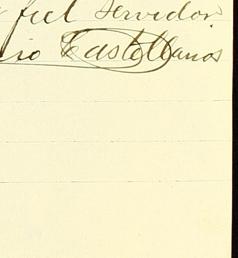 fiel servidor
io Castellanos